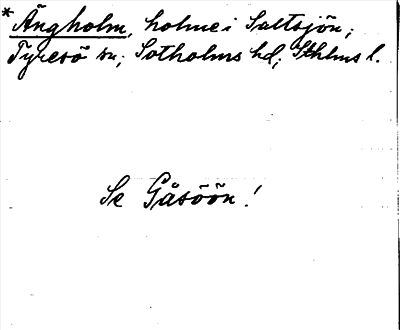 * Ängholm, holme i Saltsjön;
Tyresö sn; Sotholms hd; Sthlms l.
Se Gåsöön!